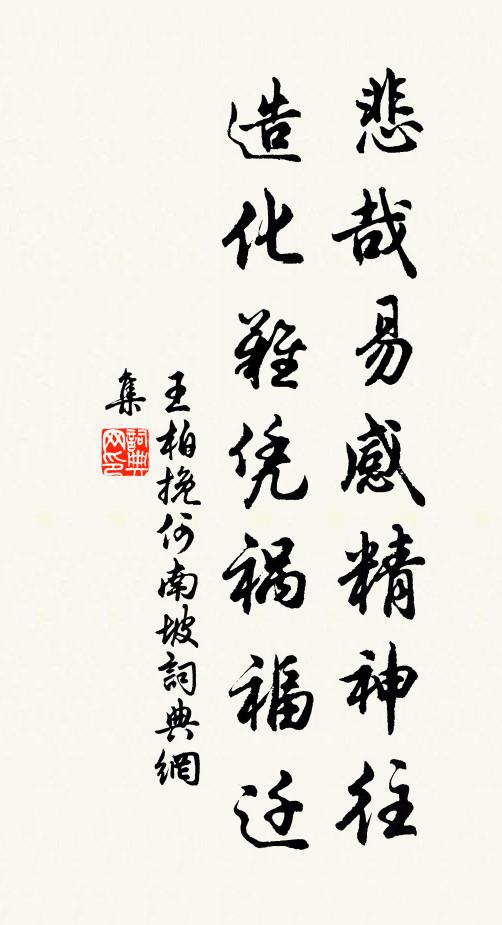 悲哉易感精神往
造化难凭祸福迁
王柏挽何南坡詞典網
集
詞典
网印